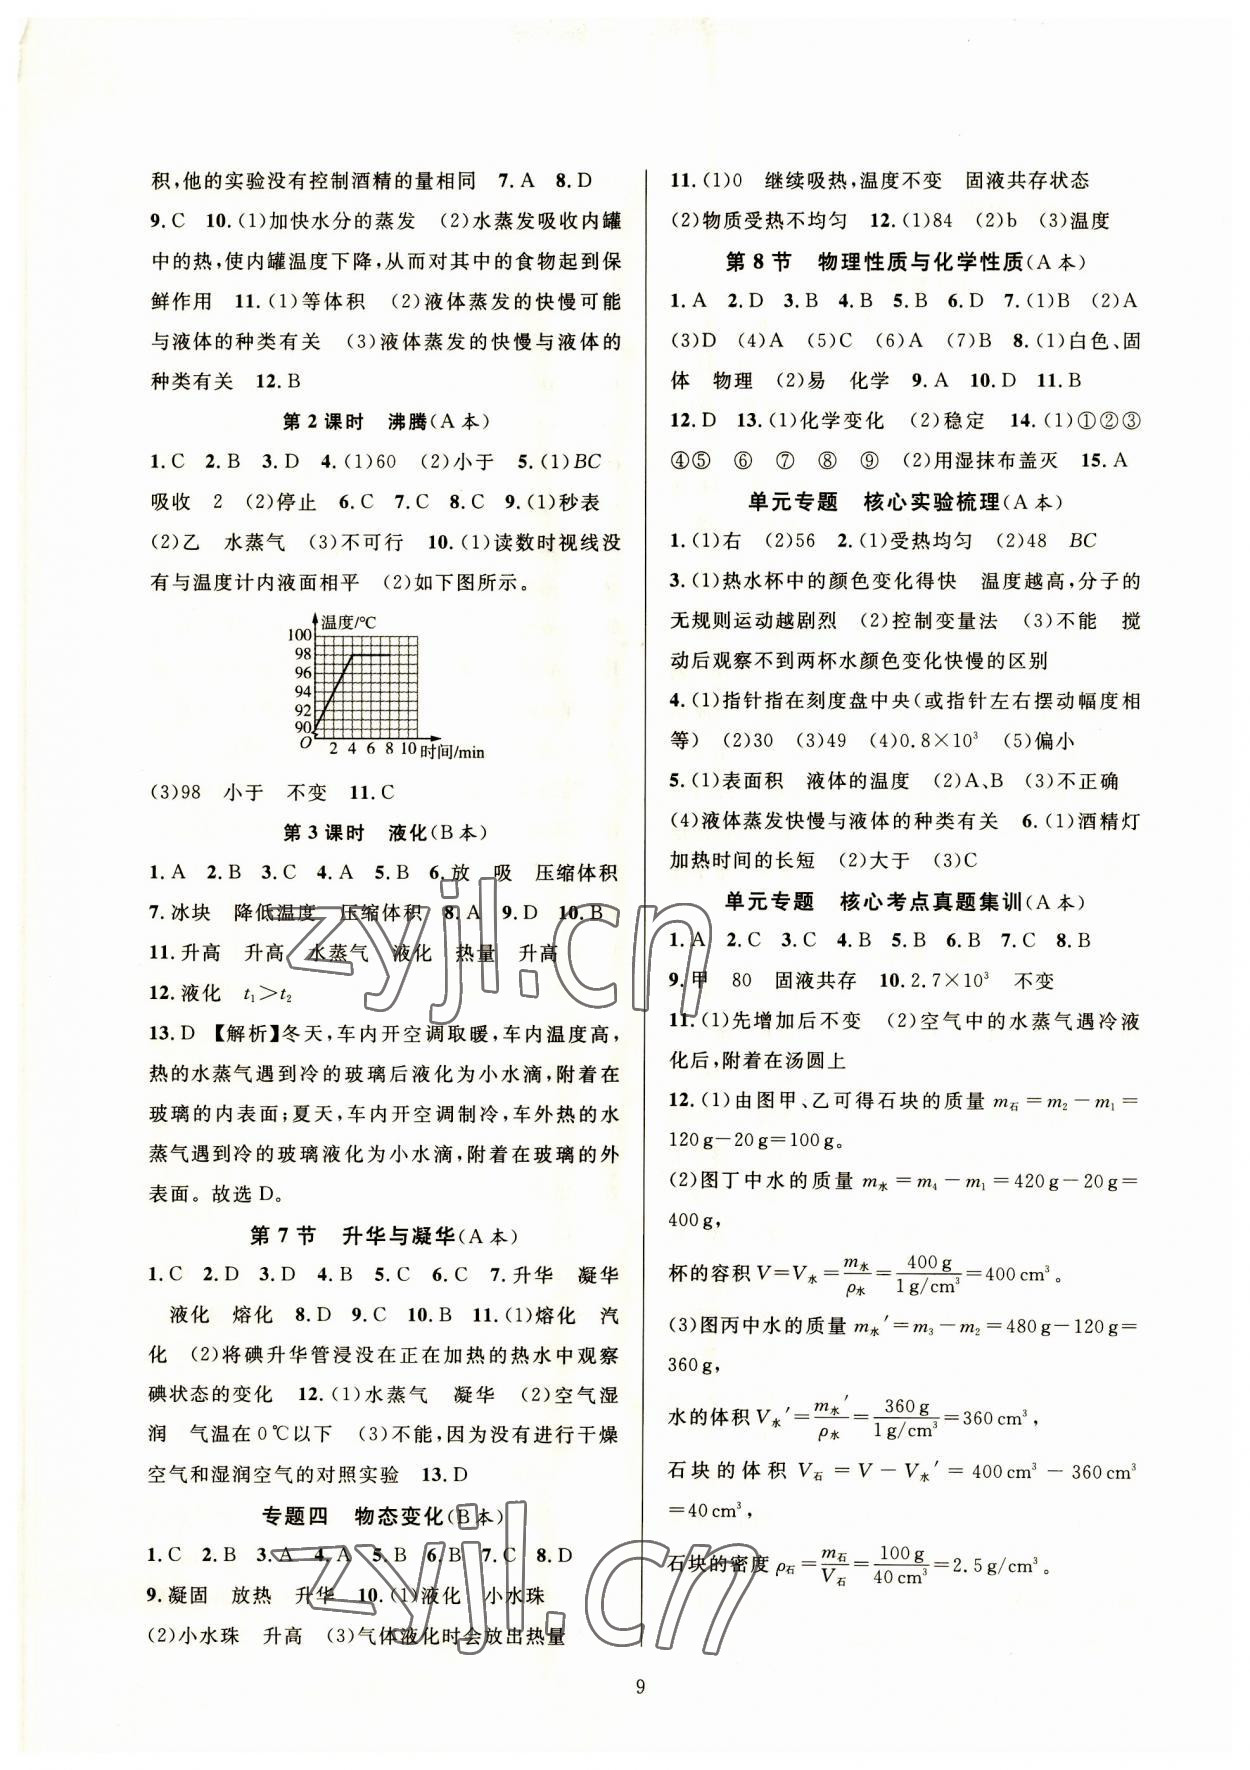 积,他的实验没有控制酒精的量相同 7.A 8.D
9.C 10.(1)加快水分的蒸发 (2)水蒸发吸收内罐
中的热,使内罐温度下降,从而对其中的食物起到保
鲜作用 11.(1)等体积 (2)液体蒸发的快慢可能
与液体的种类有关 (3)液体蒸发的快慢与液体的
种类有关 12.B
第2课时 沸腾(A本)
1.C 2.B 3.D 4.(1)60 (2)小于 5.(1)BC
吸收 2 (2)停止 6.C 7.C 8.C 9.(1)秒表
(2)乙 水蒸气 (3)不可行 10.(1)读数时视线没
有与温度计内液面相平 (2)如下图所示。
温度/℃
100
98
96
94
92
90
O 2 4 6 8 10 时间/min
(3)98 小于 不变 11.C
第3课时 液化(B本)
1.A 2.B 3.C 4.A 5.B 6.放 吸 压缩体积
7.冰块 降低温度 压缩体积 8.A 9.D 10.B
11.升高 升高 水蒸气 液化 热量 升高
12.液化 t₁>t₂
13.D 【解析】冬天,车内开空调取暖,车内温度高,
热的水蒸气遇到冷的玻璃后液化为小水滴,附着在
玻璃的内表面;夏天,车内开空调制冷,车外热的水
蒸气遇到冷的玻璃液化为小水滴,附着在玻璃的外
表面。故选D。
第7节 升华与凝华(A本)
1.C 2.D 3.D 4.B 5.C 6.C 7.升华 凝华
液化 熔化 8.D 9.C 10.B 11.(1)熔化 汽
化 (2)将碘升华管浸没在正在加热的热水中观察
碘状态的变化 12.(1)水蒸气 凝华 (2)空气湿
润 气温在0℃以下 (3)不能,因为没有进行干燥
空气和湿润空气的对照实验 13.D
专题四 物态变化(B本)
1.C 2.B 3.A 4.A 5.B 6.B 7.C 8.D
9.凝固 放热 升华 10.(1)液化 小水珠
(2)小水珠 升高 (3)气体液化时会放出热量
11.(1)0 继续吸热,温度不变 固液共存状态
(2)物质受热不均匀 12.(1)84 (2)b (3)温度
第8节 物理性质与化学性质(A本)
1.A 2.D 3.B 4.B 5.B 6.D 7.(1)B (2)A
(3)D (4)A (5)C (6)A (7)B 8.(1)白色、固
体 物理 (2)易 化学 9.A 10.D 11.B
12.D 13.(1)化学变化 (2)稳定 14.(1)①②③
④⑤ ⑥ ⑦ ⑧ ⑨ (2)用湿抹布盖灭 15.A
单元专题 核心实验梳理(A本)
1.(1)右 (2)56 2.(1)受热均匀 (2)48 BC
3.(1)热水杯中的颜色变化得快 温度越高,分子的
无规则运动越剧烈 (2)控制变量法 (3)不能 搅
动后观察不到两杯水颜色变化快慢的区别
4.(1)指针指在刻度盘中央(或指针左右摆动幅度相
等) (2)30 (3)49 (4)0.8×10³ (5)偏小
5.(1)表面积 液体的温度 (2)A、B (3)不正确
(4)液体蒸发快慢与液体的种类有关 6.(1)酒精灯
加热时间的长短 (2)大于 (3)C
单元专题 核心考点真题集训(A本)
1.A 2.C 3.C 4.B 5.B 6.B 7.C 8.B
9.甲 80 固液共存 10.2.7×10³ 不变
11.(1)先增加后不变 (2)空气中的水蒸气遇冷液
化后,附着在汤圆上
12.(1)由图甲、乙可得石块的质量 m石=m₂-m₁=
120g-20g=100g。
(2)图丁中水的质量 m水=m₄-m₁=420g-20g=
400g,
杯的容积V=V水=m水/ρ水=400g/1g/cm³=400cm³。
(3)图丙中水的质量 m水′=m₃-m₂=480g-120g=
360g,
水的体积V水′=m水′/ρ水=360g/1g/cm³=360cm³,
石块的体积 V石=V-V水′=400cm³-360cm³
=40cm³,
石块的密度ρ石=m石/V石=100g/40cm³=2.5g/cm³。
9
zyjl.cn
zyjl.cn